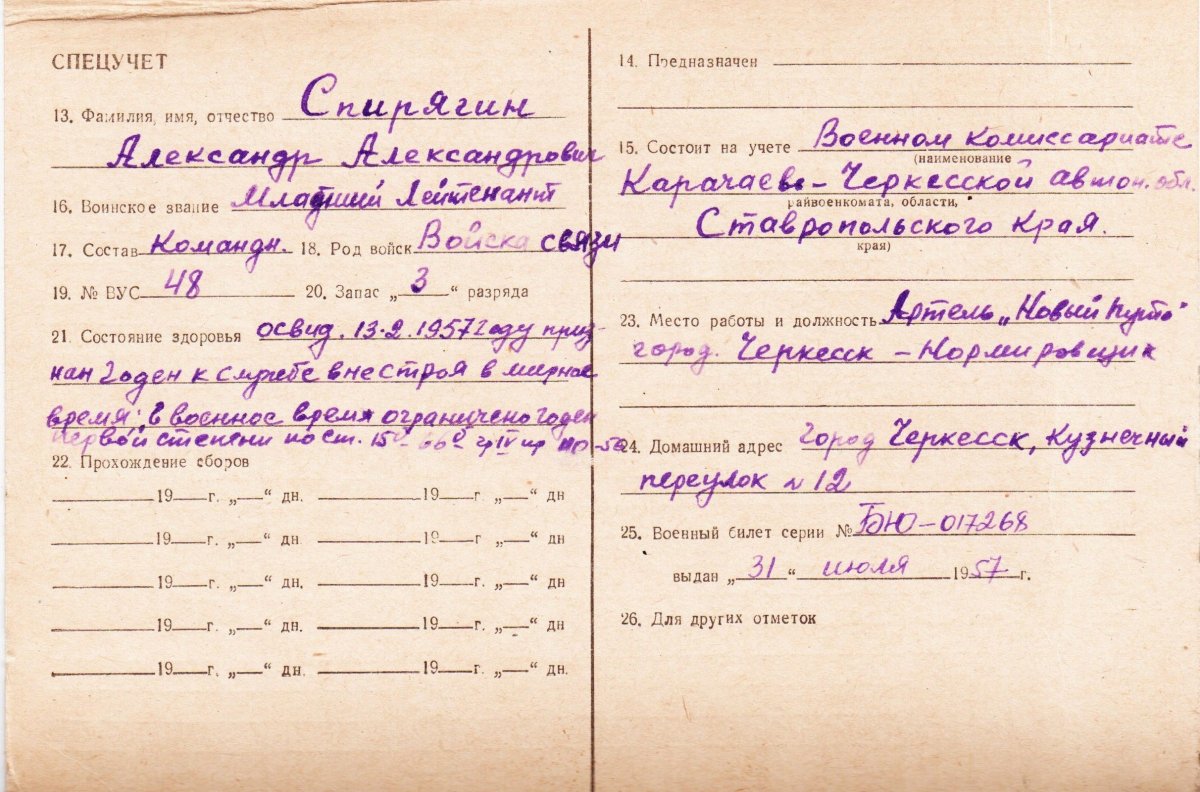 СПЕЦУЧЕТ
13. Фамилия, имя, отчество Спирягин
Александр Александрович
16. Воинское звание Младший Лейтенант
17. Состав Командн. 18. Род войск Войска связи
19. № ВУС 48 20. Запас „ 3 “ разряда
21. Состояние здоровья освид. 13.2.1957 году приз-
нан годен к службе вне строя в мирное
время; в военное время ограничено годен
первой степени по ст. 15
22. Прохождение сборов
19 г. „ “ дн. 19 г. „ “ дн
19 г. „ “ дн. 19 г. „ “ дн
19 г. „ “ дн. 19 г. „ “ дн
19 г. „ “ дн. 19 г. „ “ дн
19 г. „ “ дн. 19 г. „ “ дн.
14. Предназначен
15. Состоит на учете Военном комиссариате
(наименование
Карачаево-Черкесской автон. обл.
райвоенкомата, области,
Ставропольского Края.
края)
23. Место работы и должность Артель „Новый Путь“
город. Черкесск - Нормировщик
24. Домашний адрес город Черкесск, Кузнечный
переулок № 12
25. Военный билет серии № БЮ-017268
выдан „ 31 “ июля 1957 г.
26. Для других отметок